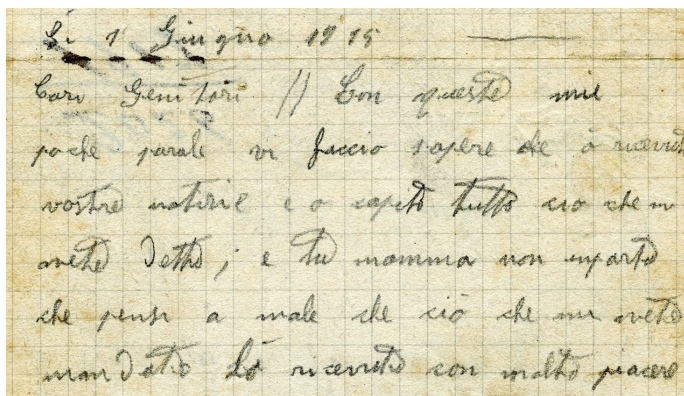 Li 1 Giugno 1915
Cari Genitori // Con queste mie
poche parole vi faccio sapere che ò ricevuto
vostre notizie e o capito tutto ciò che m
avete detto ; e tu mamma non inporta
che pensi a male che ciò che mi avete
mandato Lò ricevuto con molto piacere